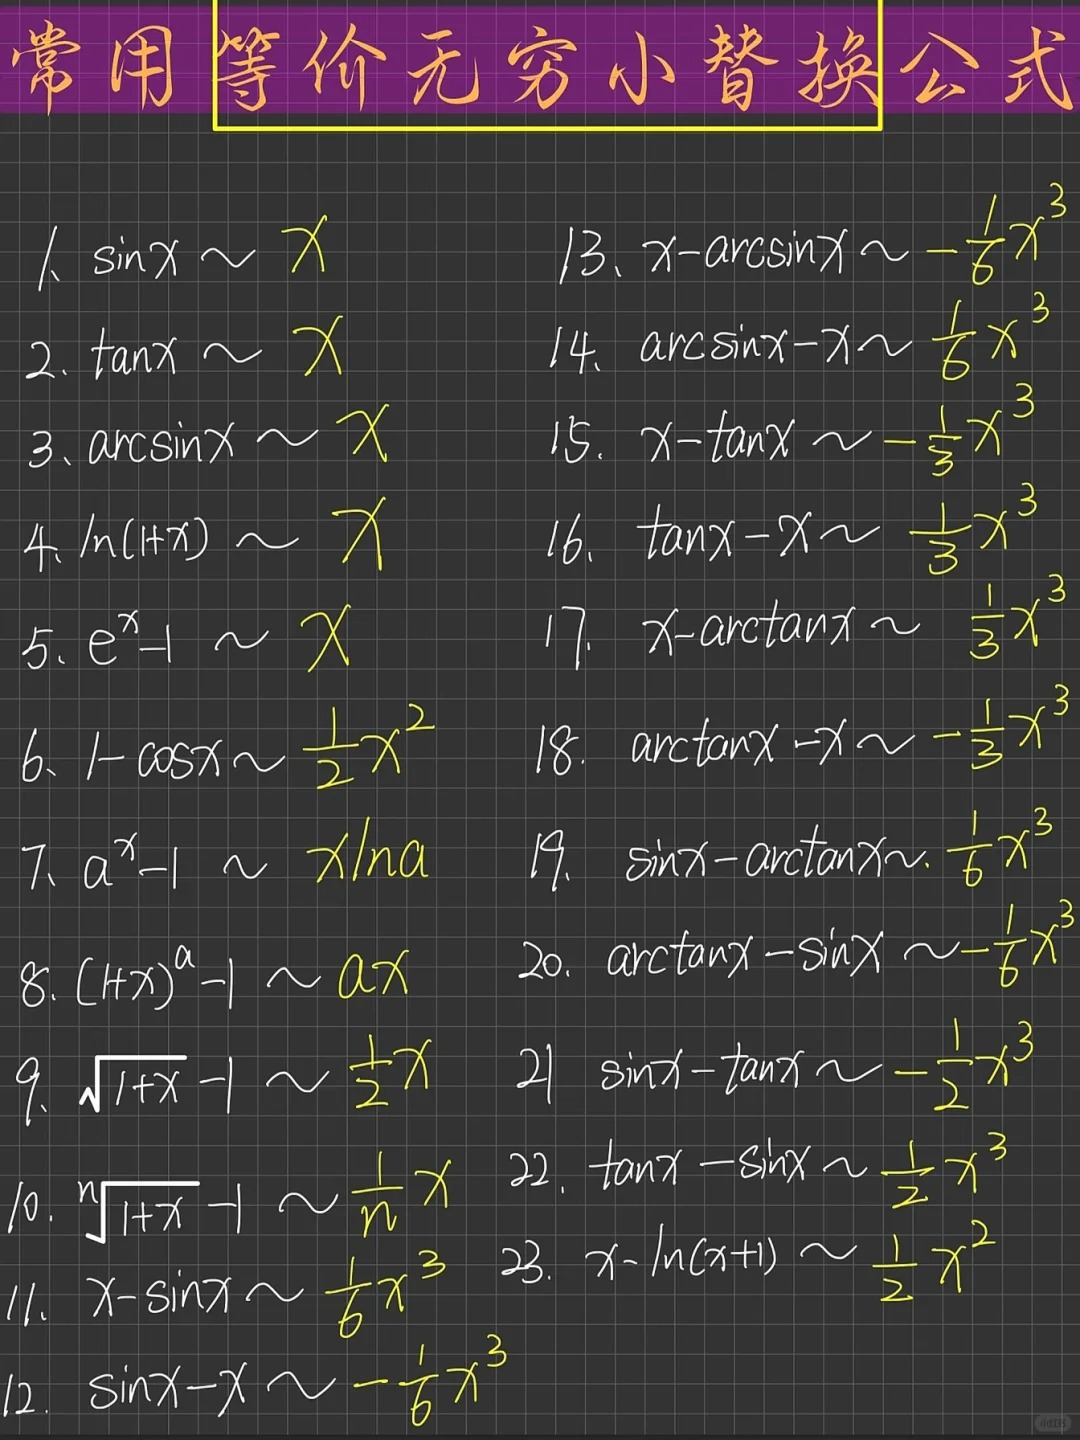 常用等价无穷小替换公式
1、sinx ~ x
2、tanx ~ x
3、arcsinx ~ x
4、ln(1+x) ~ x
5、e^x-1 ~ x
6、1-cosx ~ 1/2 x^2
7、a^x-1 ~ xlna
8.(1+x)^a-1 ~ ax
9、√(1+x)-1 ~ 1/2 x
10. ⁿ√(1+x)-1 ~ 1/n x
11. x-sinx ~ 1/6 x^3
12. sinx-x ~ -1/6 x^3
13、x-arcsinx ~ -1/6 x^3
14. arcsinx-x ~ 1/6 x^3
15. x-tanx ~ -1/3 x^3
16. tanx-x ~ 1/3 x^3
17. x-arctanx ~ 1/3 x^3
18. arctanx-x ~ -1/3 x^3
19. sinx-arctanx ~. 1/6 x^3
20. arctanx-sinx ~ -1/6 x^3
21 sinx-tanx ~ -1/2 x^3
22. tanx-sinx ~ 1/2 x^3
23. x-ln(x+1) ~ 1/2 x^2